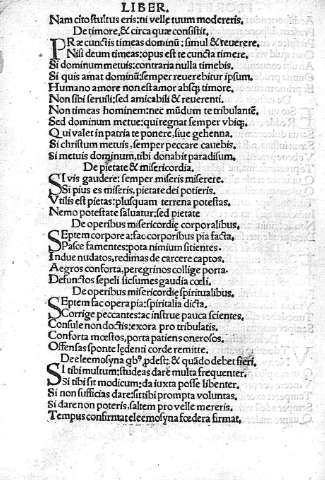 LIBER.
Nam cito stultus eris: ni velle tuum modereris.
De timore, & circa quæ consistit.
PRæ cunctis timeas dominũ; simul & reuerere,
Nisi deum timeas: opus est te cuncta timere.
Si dominum metuis: contraria nulla timebis.
Si quis amat dominũ: semper reuerebitur ipsum.
Humano amore non est amor absqȝ timore.
Non sibi seruili: sed amicabili & reuerenti.
Non timeas hominem: nec mũdum te tribulantẽ.
Sed dominum metue: qui regnat semper vbiqȝ.
Qui valet in patria te ponere, siue gehenna.
Si christum metuis, semper peccare cauebis.
Si metuis dominum, tibi donabit paradisum.
De pietate & misericordia.
SI vis gaudere: semper miseris miserere.
Si pius es miseris, pietate dei potieris.
Vtilis est pietas: plusquam terrena potestas.
Nemo potestate saluatur: sed pietate
De operibus misericordię corporalibus.
SEptem corporea: fac corporibus pia facta,
Pasce famentes: pota nimium sitientes.
Indue nudatos, redimas de carcere captos,
Aegros conforta, peregrinos collige porta.
Defunctos sepeli: sic sumes gaudia cœli.
De operibus misericordię spiritualibus.
SEptem fac opera pia: spiritalia dicta.
Corrige peccantes: ac instrue pauca scientes.
Consule non doctis: exora pro tribulatis.
Conforta mœstos, porta patiens onerosos.
Offensas sponte lędenti corde remitte.
De eleemosyna qbꝰ ꝓdest; & quãdo debet fieri.
SI tibi multum: studeas dare multa frequenter.
Si tibi sit modicum: da iuxta posse libenter.
Si non sufficias dare: sit tibi prompta voluntas.
Si dare non poteris, saltem pro velle mereris.
Tempus confirmat eleemosyna fœdera firmat.